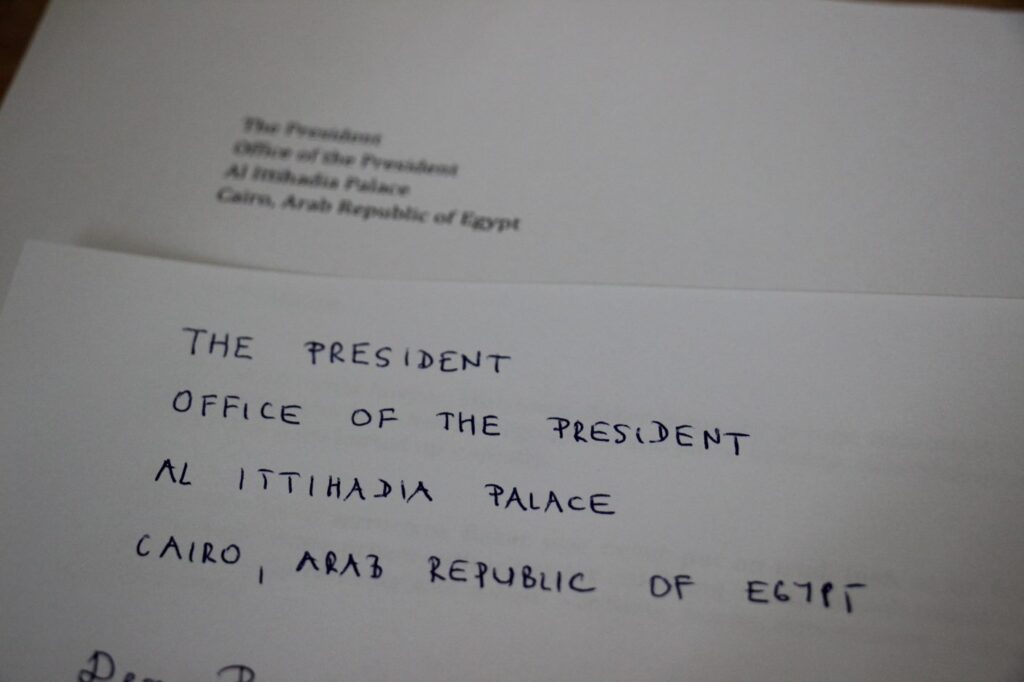 The President
Office of the President
Al Ittihadia Palace
Cairo, Arab Republic of Egypt
THE PRESIDENT
OFFICE OF THE PRESIDENT
AL ITTIHADIA PALACE
CAIRO, ARAB REPUBLIC OF EGYPT